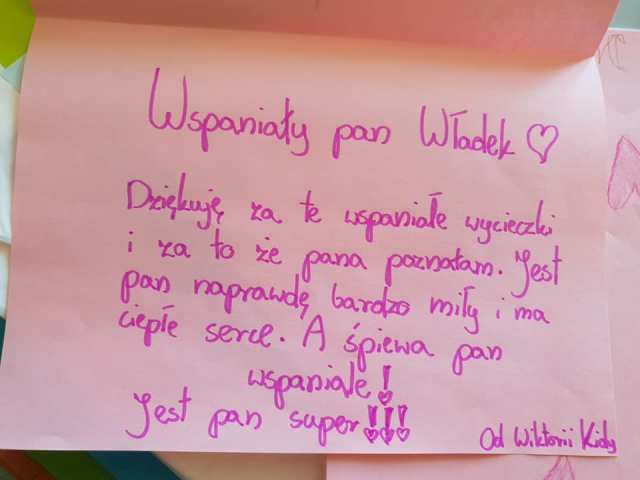 Wspaniały pan Władek ♡
Dziękuję za te wspaniałe wycieczki
i za to że pana poznałam. Jest
pan naprawdę bardzo miły i ma
ciepłe serce. A śpiewa pan
wspaniale!
Jest pan super!!!
Od Wiktorii Kidy